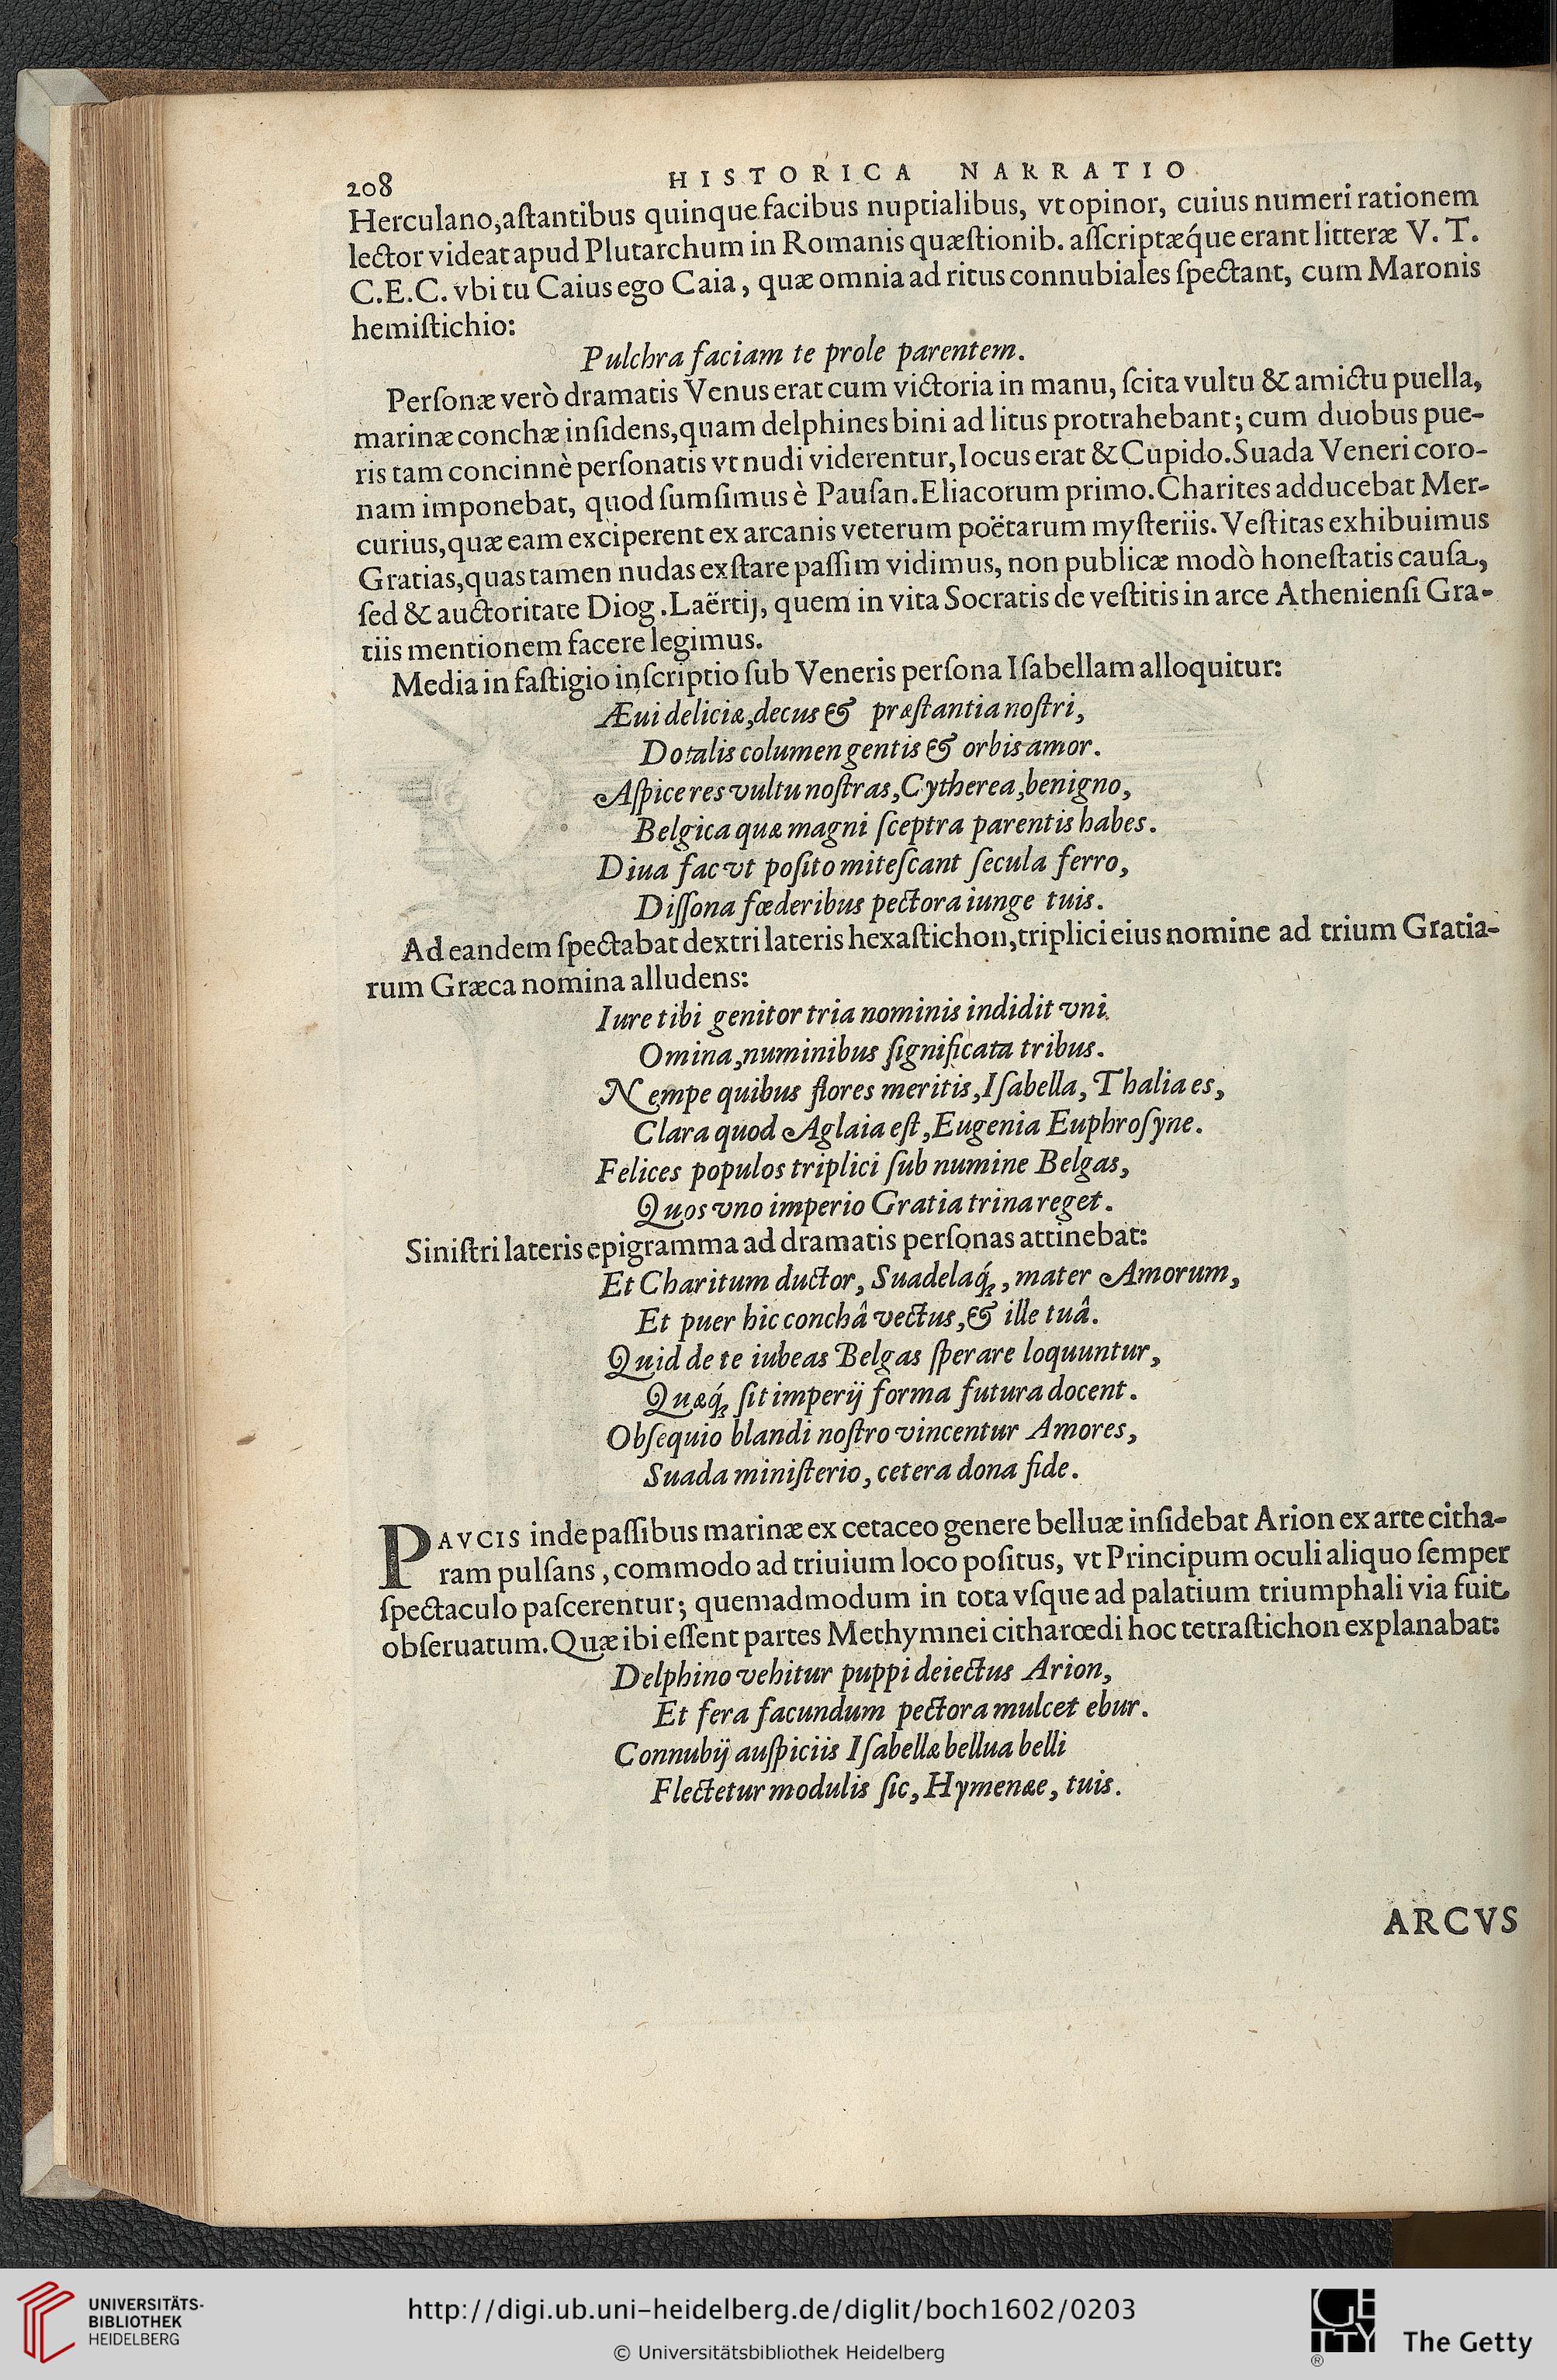 208 HISTORICA NARRATIO
Herculano, aſtantibus quinque facibus nuptialibus, vt opinor, cuius numeri rationem
lector videat apud Plutarchum in Romanis quæſtionib. aſſcriptæq́ue erant litteræ V. T.
C.E.C. vbi tu Caius ego Caia, quæ omnia ad ritus connubiales ſpectant, cum Maronis
hemiſtichio:
Pulchra faciam te prole parentem.
Perſonæ verò dramatis Venus erat cum victoria in manu, ſcita vultu & amictu puella,
marinæ conchæ inſidens, quam delphines bini ad litus protrahebant; cum duobus pue-
ris tam concinnè perſonatis vt nudi viderentur, Iocus erat & Cupido. Suada Veneri coro-
nam imponebat, quod ſumſimus è Pauſan. Eliacorum primo. Charites adducebat Mer-
curius, quæ eam exciperent ex arcanis veterum poëtarum myſteriis. Veſtitas exhibuimus
Gratias, quas tamen nudas exſtare paſſim vidimus, non publicæ modò honeſtatis cauſa,
ſed & auctoritate Diog. Laërtij, quem in vita Socratis de veſtitis in arce Athenienſi Gra-
tiis mentionem facere legimus.
Media in faſtigio inſcriptio ſub Veneris perſona Iſabellam alloquitur:
Æui deliciæ, decus & præſtantia noſtri,
Dotalis columen gentis & orbis amor.
Aſpice res vultu noſtras, Cytherea, benigno,
Belgica quæ magni ſceptra parentis habes.
Diua fac vt poſito miteſcant ſecula ferro,
Diſſona fœderibus pectora iunge tuis.
Ad eandem ſpectabat dextri lateris hexaſtichon, triplici eius nomine ad trium Gratia-
rum Græca nomina alludens:
Iure tibi genitor tria nominis indidit vni
Omina, numinibus ſignificata tribus.
Nempe quibus flores meritis, Iſabella, Thalia es,
Clara quod Aglaia eſt, Eugenia Euphroſyne.
Felices populos triplici ſub numine Belgas,
Quos vno imperio Gratia trina reget.
Siniſtri lateris epigramma ad dramatis perſonas attinebat:
Et Charitum ductor, Suadelaq́;, mater Amorum,
Et puer hic conchâ vectus, & ille tuâ.
Quid de te iubeas Belgas ſperare loquuntur,
Quæq́; ſit imperij forma futura docent.
Obſequio blandi noſtro vincentur Amores,
Suada miniſterio, cetera dona fide.
PAVCIS inde paſſibus marinæ ex cetaceo genere belluæ inſidebat Arion ex arte citha-
ram pulſans, commodo ad triuium loco poſitus, vt Principum oculi aliquo ſemper
ſpectaculo paſcerentur; quemadmodum in tota vſque ad palatium triumphali via fuit
obſeruatum. Quæ ibi eſſent partes Methymnei citharœdi hoc tetraſtichon explanabat:
Delphino vehitur puppi deiectus Arion,
Et fera facundum pectora mulcet ebur.
Connubij auſpiciis Iſabellæ bellua belli
Flectetur modulis ſic, Hymenæe, tuis.
ARCVS
UNIVERSITÄTS-
BIBLIOTHEK
HEIDELBERG
http://digi.ub.uni-heidelberg.de/diglit/boch1602/0203
© Universitätsbibliothek Heidelberg
GETTY
®
The Getty